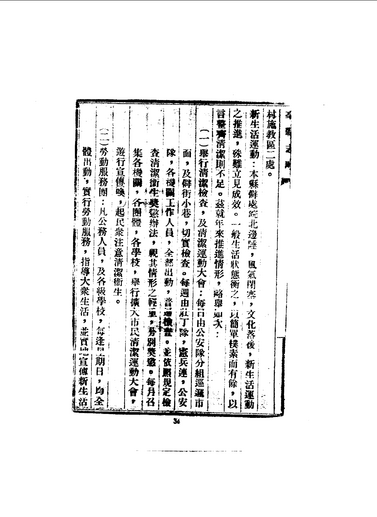 村施教區二處。
新生活運動：本縣僻處皖北邊陲，風氣閉塞，文化落後，新生活運動
之推進，殊難立見成效。一般生活狀態衡之，以簡單樸素而有餘，以
言整齊清潔則不足。茲就年來推進情形，略舉如次：
（一）舉行清潔檢查，及清潔運動大會：每日由公安隊分組巡邏市
面，及僻街小巷，切實檢查。每週由壯丁隊，憲兵連，公安
隊，各機關工作人員，全部出動，普遍檢查。並依照規定檢
查清潔衛生獎懲辦法，視其情形之輕重，分別獎懲。每月召
集各機關，各團體，各學校，舉行擴大市民清潔運動大會，
遊行宣傳喚，起民衆注意清潔衛生。
（二）勞動服務團：凡公務人員，及各級學校，每逢星期日，均全
體出動，實行勞動服務，指導大衆生活，並實地宣傳新生活
34